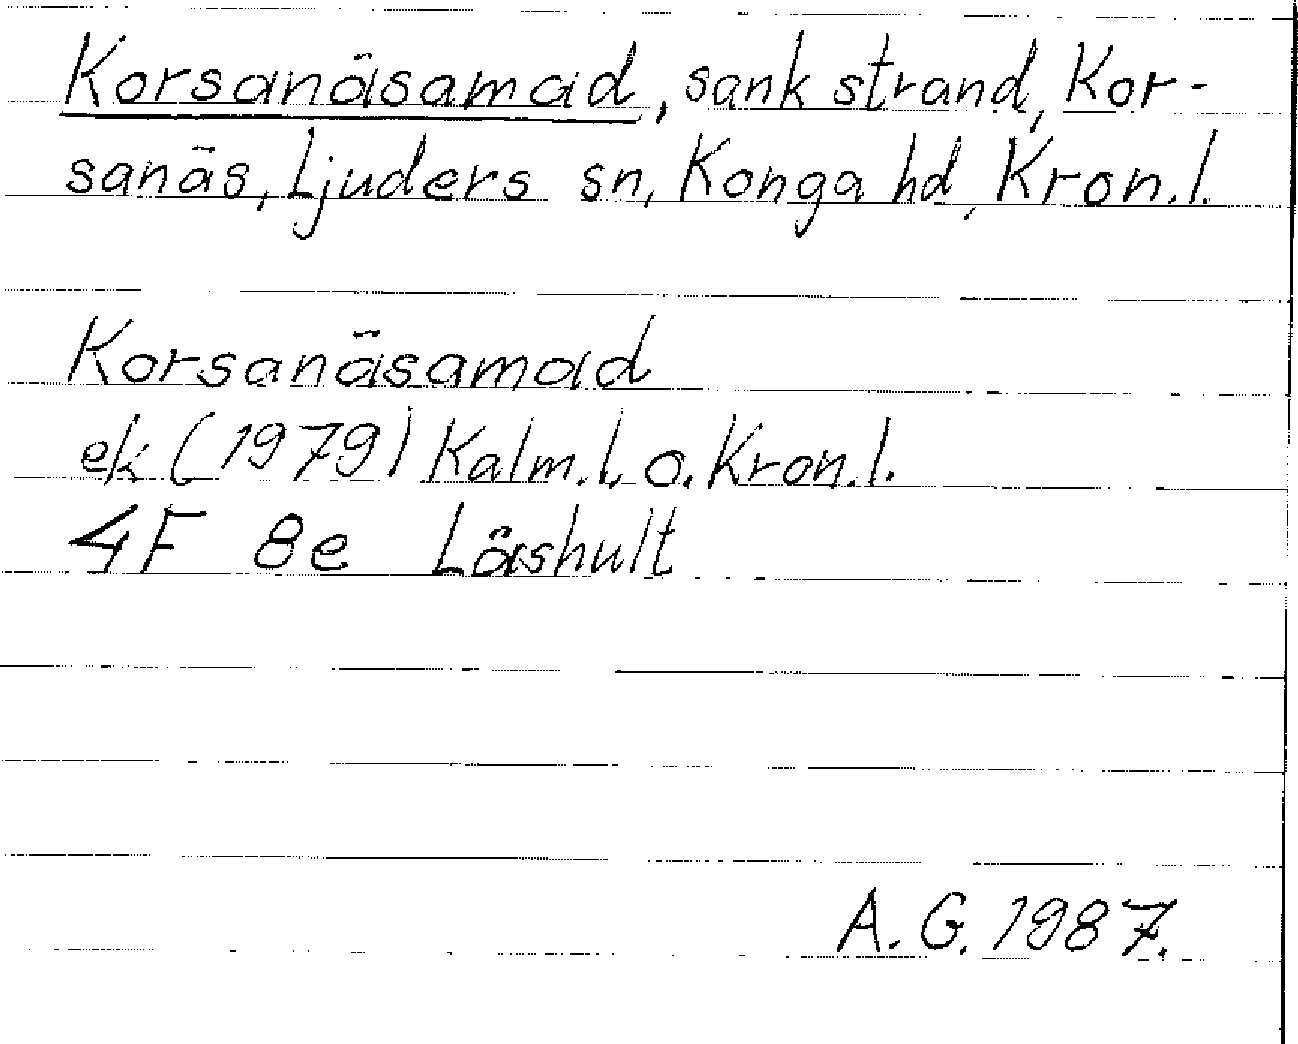 Korsanäsamad, sank strand, Kor-
sanäs, Ljuders sn, Konga hd, Kron.l.
Korsanäsamad
ek (1979) Kalm.l. o. Kron.l.
4F 8e Låshult
A.G. 1987.